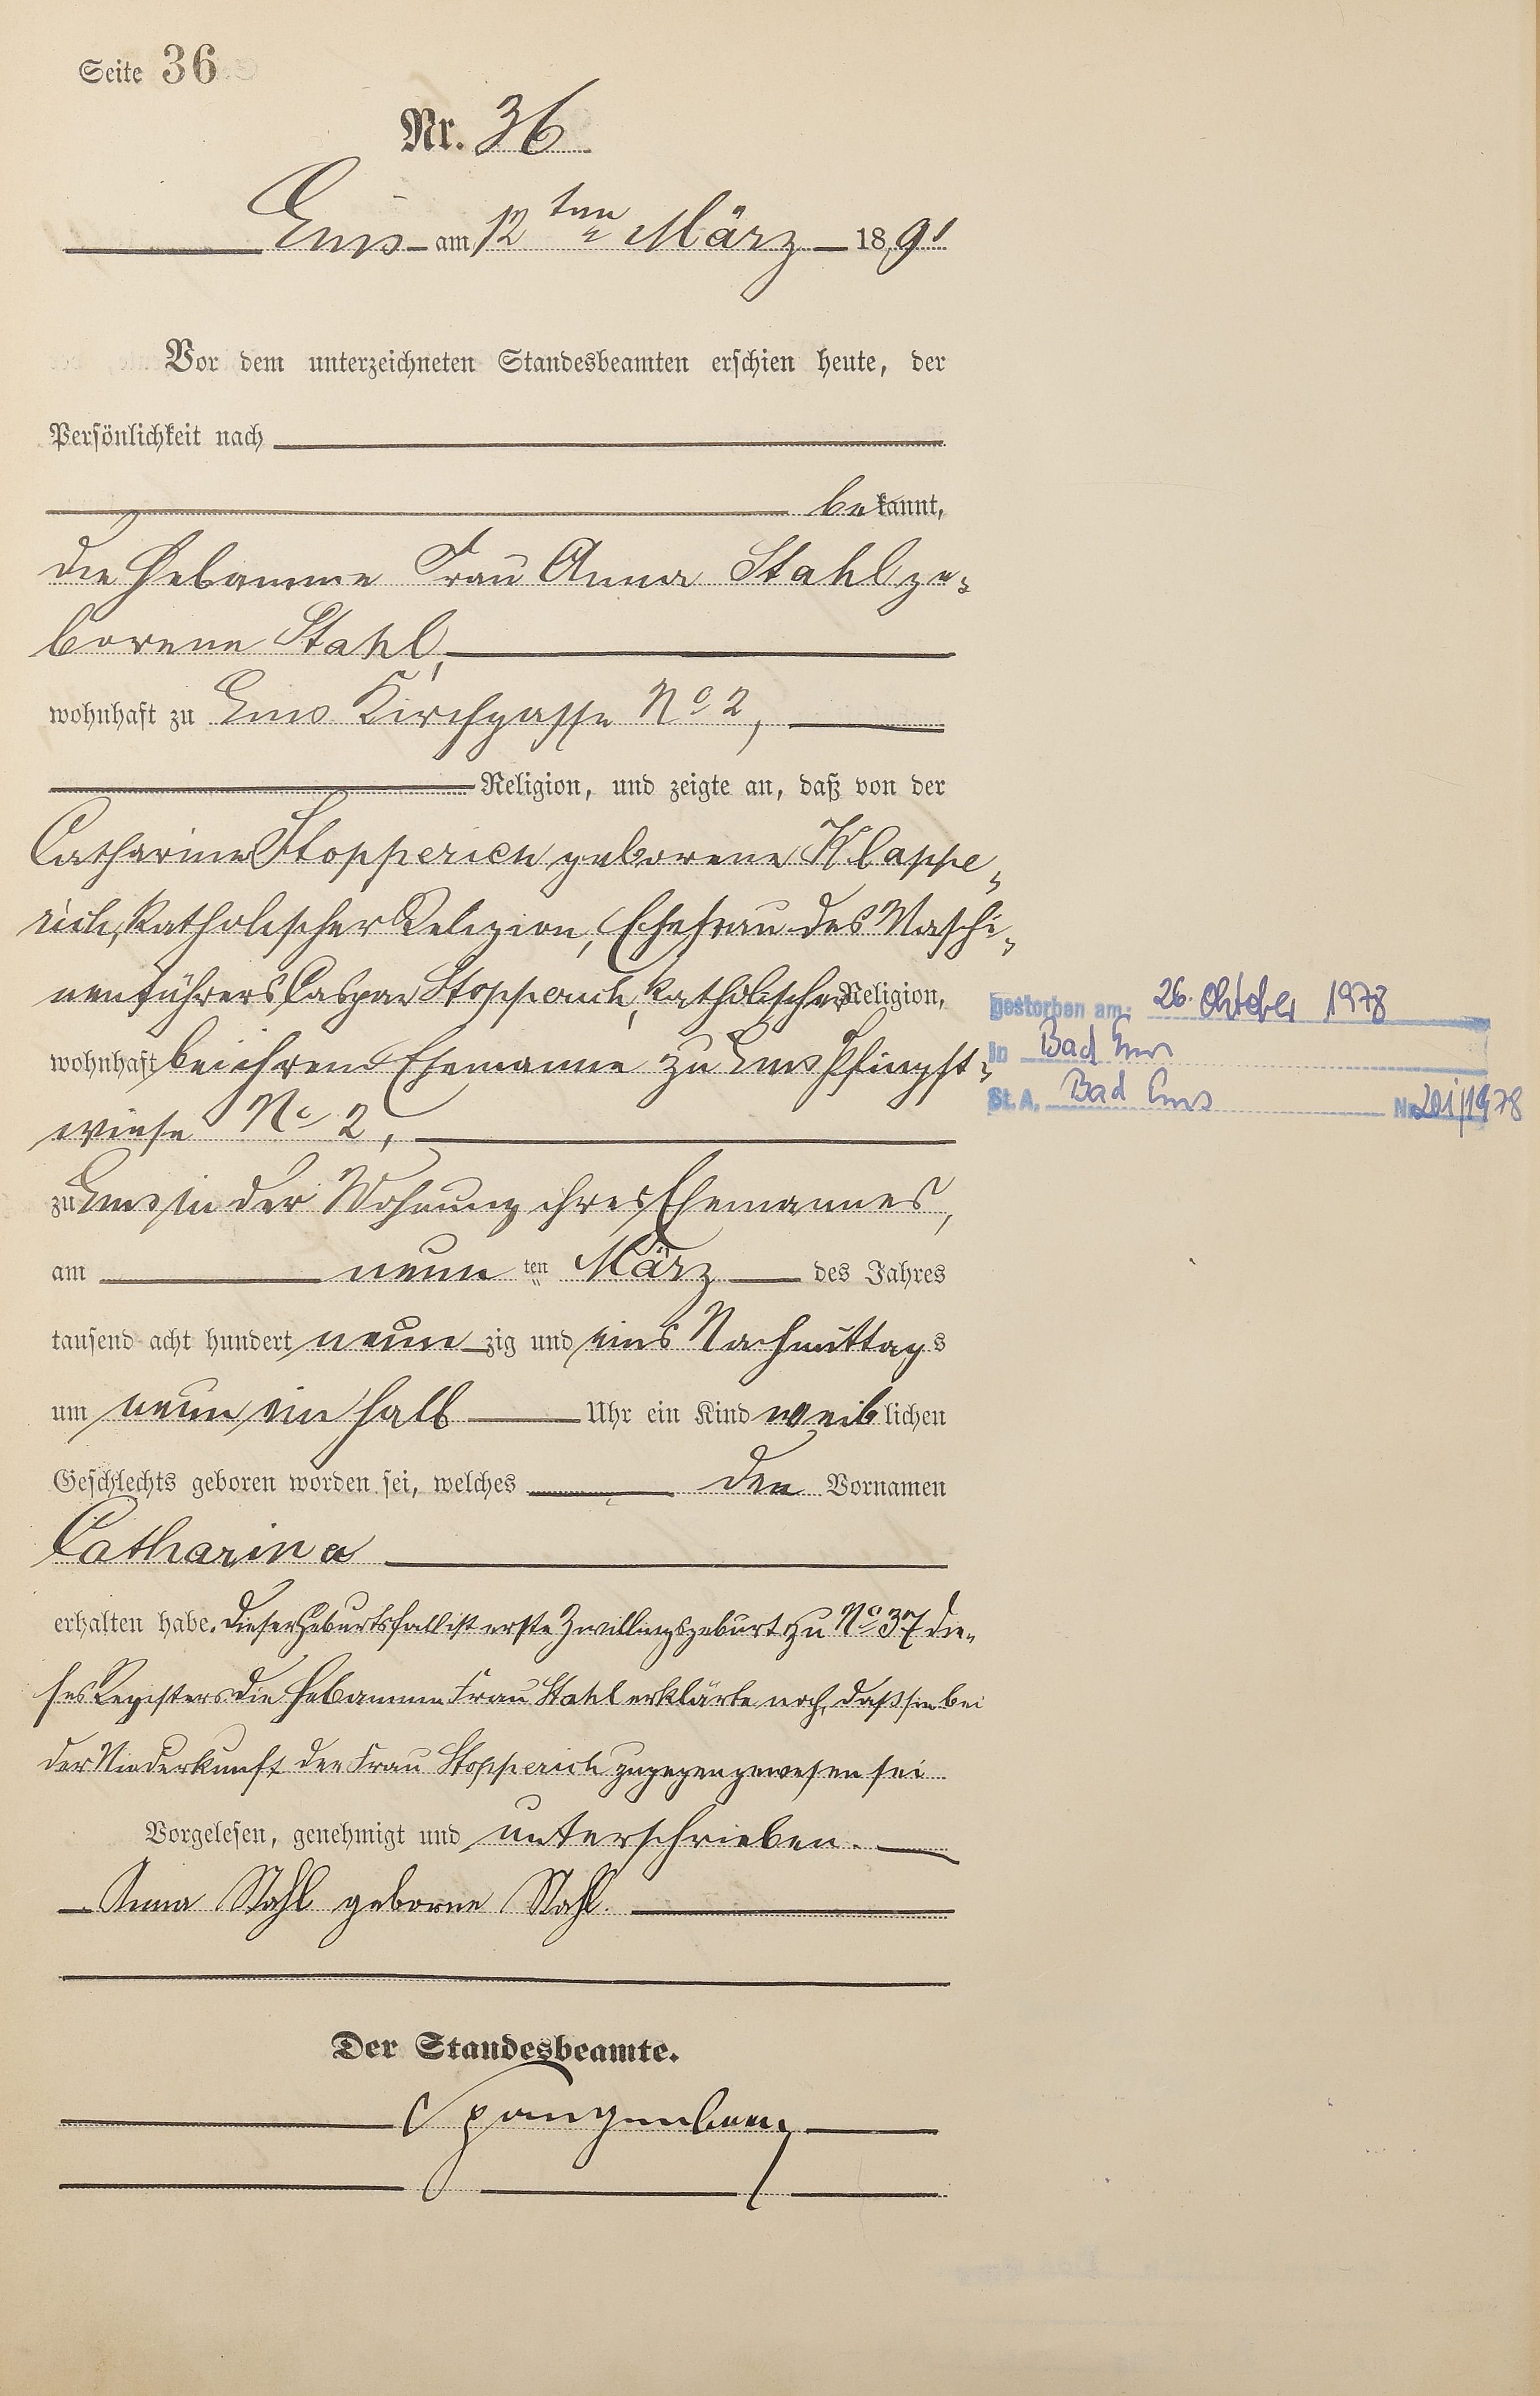 Seite 36
Nr. 36
Ems am 12ten März 1891
Vor dem unterzeichneten Standesbeamten erschien heute, der
Persönlichkeit nach
bekannt,
die Hebamme Frau Anna Stahl ge-
borene Stahl,
wohnhaft zu Ems Kirchgasse No 2,
Religion, und zeigte an, daß von der
Catharina Stopperich geborene Klappe-
rich, katholischer Religion, Ehefrau des Maschi-
nenführers Caspar Stopperich, katholischer Religion,
wohnhaft bei ihrem Ehemanne zu Ems Pfingst-
wiese No 2,
zu Ems in der Wohnung ihres Ehemannes,
am neun ten März des Jahres
tausend acht hundert neun zig und eins Nachmittags
um neun ein halb Uhr ein Kind weiblichen
Geschlechts geboren worden sei, welches den Vornamen
Catharina
erhalten habe. Dieser Geburtsfall ist erste Zwillingsgeburt zu No 37 die-
ses Registers. Die Hebamme Frau Stahl erklärte noch, daß sie bei
der Niederkunft der Frau Stopperich zugegen gewesen sei
Vorgelesen, genehmigt und unterschrieben.
Anna Stahl geborne Stahl.
Der Standesbeamte.
Spangenberg
gestorben am: 26. Oktober 1978
in Bad Ems
St.A. Bad Ems Nr. 201/1978